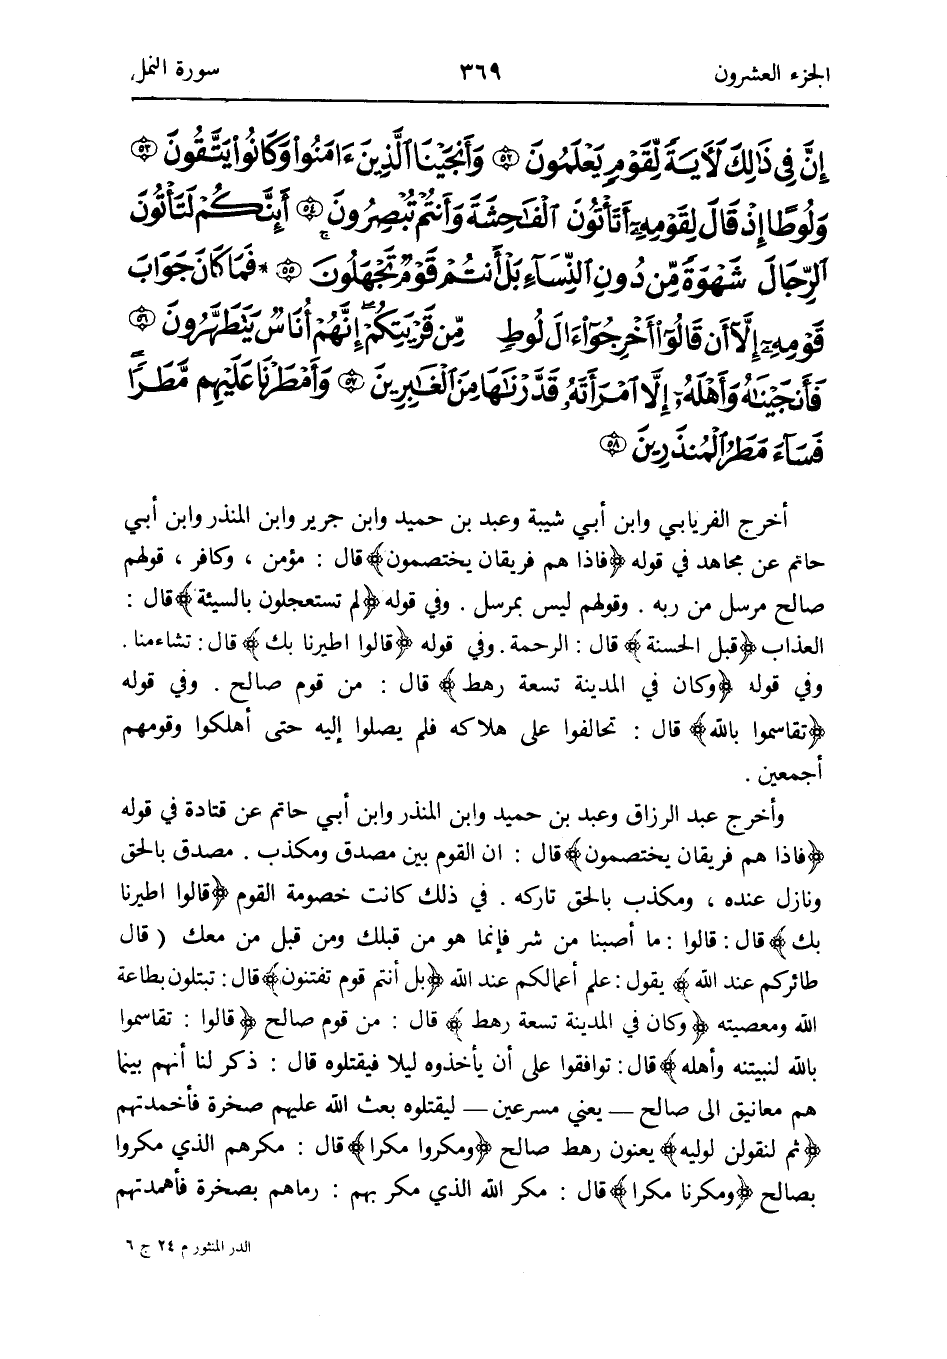 الجزء العشرون ٣٦٩ سورة النمل
إِنَّ فِى ذَٰلِكَ لَأَيَةً لِّقَوْمٍ يَعْلَمُونَ ۝٥٢ وَأَنجَيْنَا ٱلَّذِينَ ءَامَنُواْ وَكَانُواْ يَتَّقُونَ ۝٥٣
وَلُوطًا إِذْ قَالَ لِقَوْمِهِۦٓ أَتَأْتُونَ ٱلْفَٰحِشَةَ وَأَنتُمْ تُبْصِرُونَ ۝٥٤ أَئِنَّكُمْ لَتَأْتُونَ
ٱلرِّجَالَ شَهْوَةً مِّن دُونِ ٱلنِّسَآءِ بَلْ أَنتُمْ قَوْمٌ تَجْهَلُونَ ۝٥٥ * فَمَا كَانَ جَوَابَ
قَوْمِهِۦٓ إِلَّآ أَن قَالُوٓاْ أَخْرِجُوٓاْ ءَالَ لُوطٍ مِّن قَرْيَتِكُمْ إِنَّهُمْ أُنَاسٌ يَتَطَهَّرُونَ ۝٥٦
فَأَنجَيْنَٰهُ وَأَهْلَهُۥٓ إِلَّا ٱمْرَأَتَهُۥ قَدَّرْنَٰهَا مِنَ ٱلْغَٰبِرِينَ ۝٥٧ وَأَمْطَرْنَا عَلَيْهِم مَّطَرًا
فَسَآءَ مَطَرُ ٱلْمُنذَرِينَ ۝٥٨
أخرج الفريابي وابن أبي شيبة وعبد بن حميد وابن جرير وابن المنذر وابن أبي
حاتم عن مجاهد في قوله ﴿فاذا هم فريقان يختصمون﴾ قال : مؤمن ، وكافر ، قولهم
صالح مرسل من ربه . وقولهم ليس بمرسل . وفي قوله ﴿لم تستعجلون بالسيئة﴾ قال :
العذاب ﴿قبل الحسنة﴾ قال : الرحمة . وفي قوله ﴿قالوا اطيرنا بك﴾ قال : تشاءمنا .
وفي قوله ﴿وكان في المدينة تسعة رهط﴾ قال : من قوم صالح . وفي قوله
﴿تقاسموا بالله﴾ قال : تحالفوا على هلاكه فلم يصلوا إليه حتى أهلكوا وقومهم
أجمعين .
وأخرج عبد الرزاق وعبد بن حميد وابن المنذر وابن أبي حاتم عن قتادة في قوله
﴿فاذا هم فريقان يختصمون﴾ قال : ان القوم بين مصدق ومكذب . مصدق بالحق
ونازل عنده ، ومكذب بالحق تاركه . في ذلك كانت خصومة القوم ﴿قالوا اطيرنا
بك﴾ قال : قالوا : ما أصبنا من شر فإنما هو من قبلك ومن قبل من معك ( قال
طائركم عند الله ﴾ يقول : علم أعمالكم عند الله ﴿بل أنتم قوم تفتنون﴾ قال : تبتلون بطاعة
الله ومعصيته ﴿وكان في المدينة تسعة رهط﴾ قال : من قوم صالح ﴿قالوا : تقاسموا
بالله لنبيتنه وأهله﴾ قال : توافقوا على أن يأخذوه ليلا فيقتلوه قال : ذكر لنا أنهم بينما
هم معانيق الى صالح — يعني مسرعين — ليقتلوه بعث الله عليهم صخرة فأخمدتهم
﴿ثم لنقولن لوليه﴾ يعنون رهط صالح ﴿ومكروا مكرا﴾ قال : مكرهم الذي مكروا
بصالح ﴿ومكرنا مكرا﴾ قال : مكر الله الذي مكر بهم : رماهم بصخرة فأهمدتهم
الدر المنثور م ٢٤ ج ٦